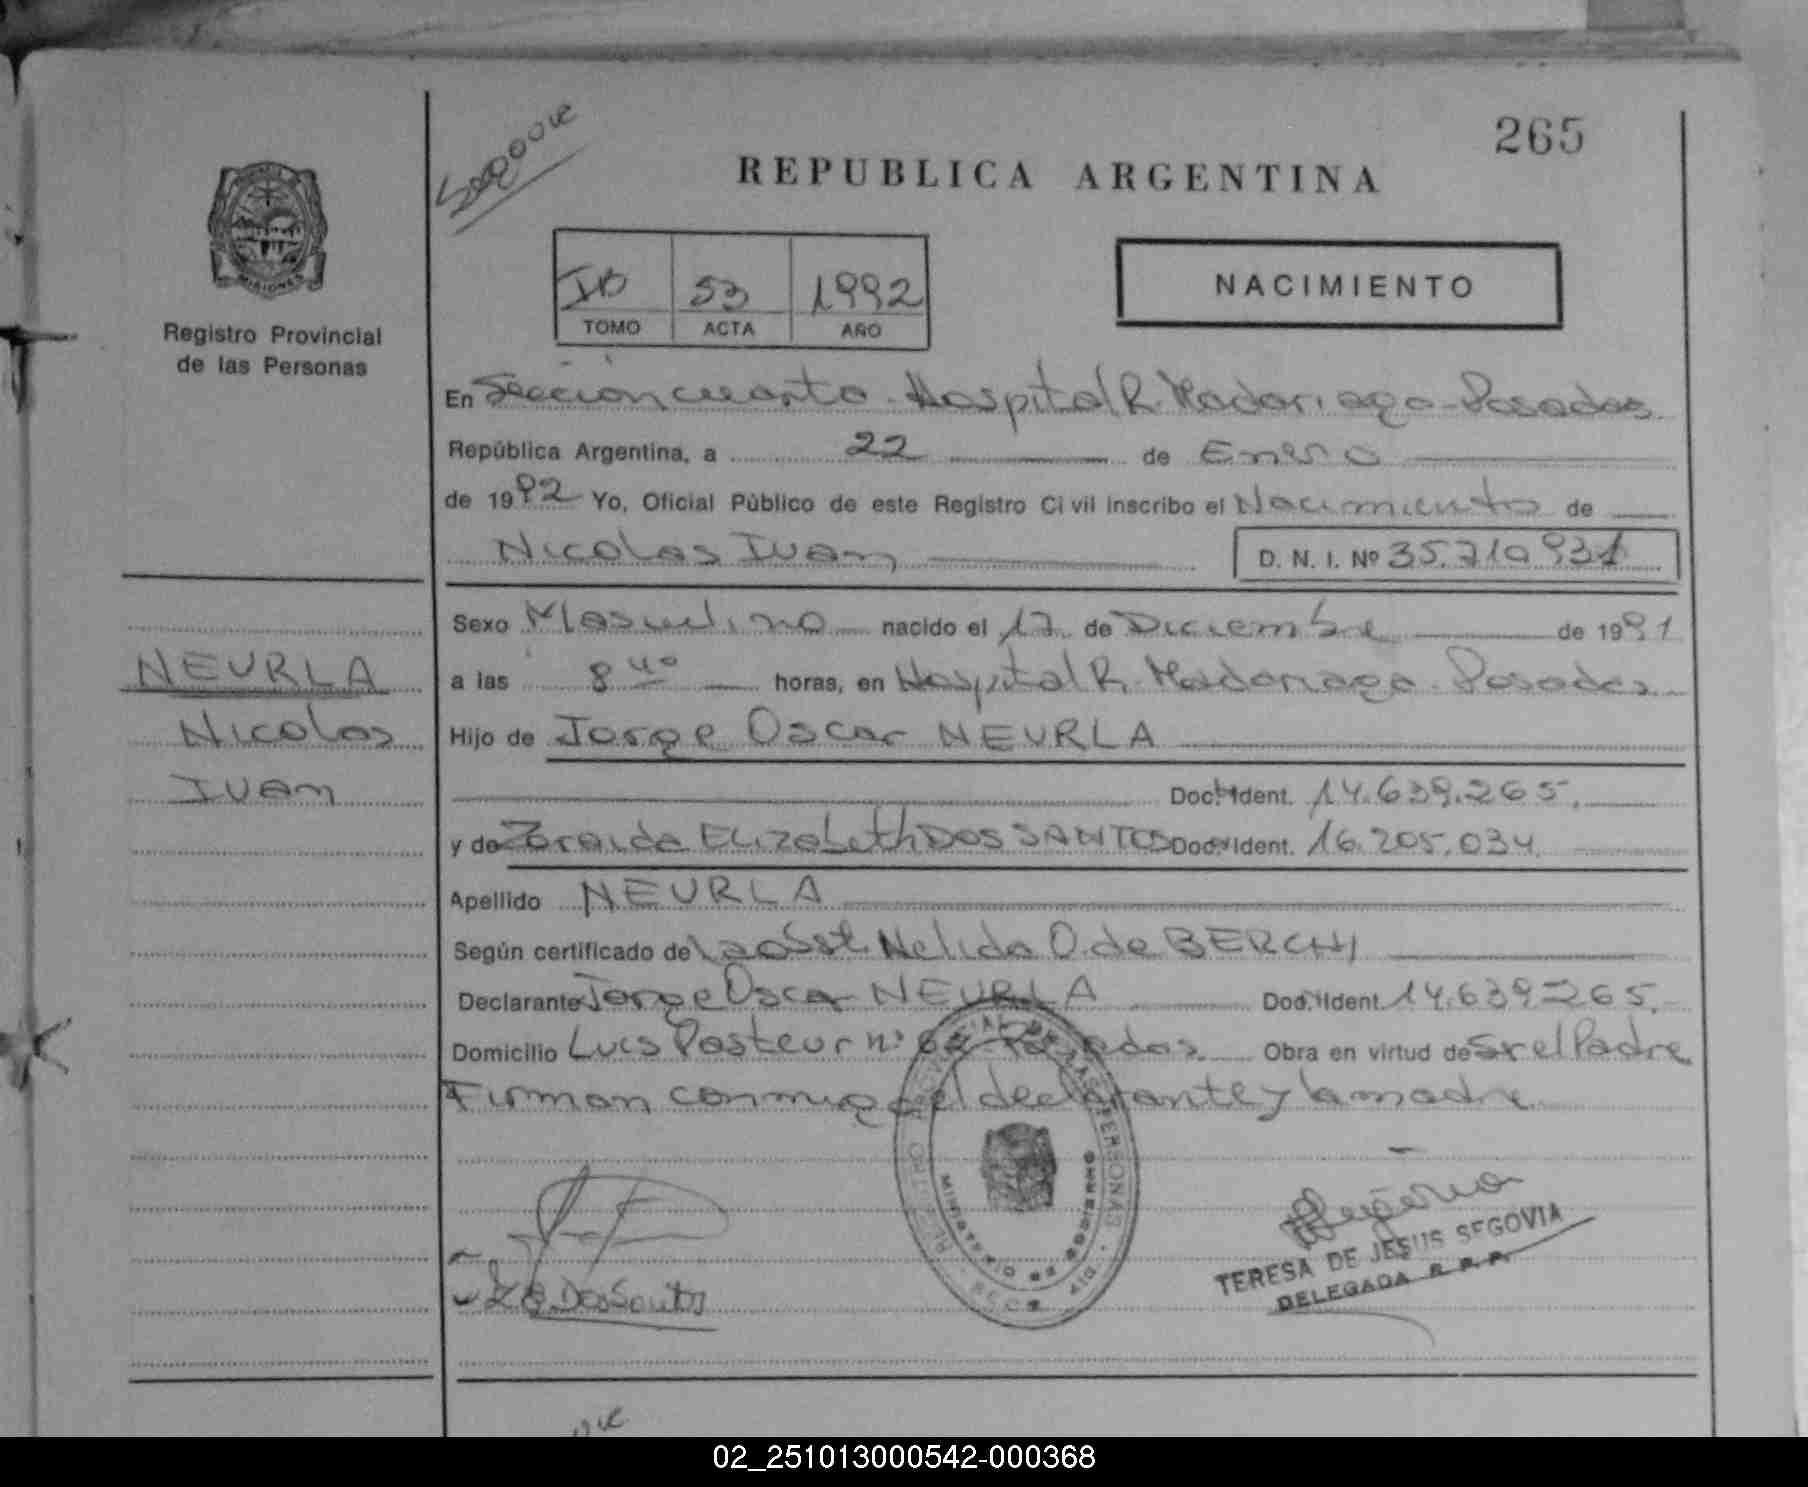 265
REPUBLICA ARGENTINA
MISIONES
Registro Provincial
de las Personas
53 1992
TOMO ACTA AÑO
NACIMIENTO
En Sección cuarta - Hospital R. Madariaga - Posadas
República Argentina, a 22 de Enero
de 1992 Yo, Oficial Público de este Registro Civil inscribo el Nacimiento de
Nicolas Ivan D. N. I. Nº 35.710.931
Sexo Masculino nacido el 17 de Diciembre de 1991
a las 8 40 horas, en Hospital R. Madariaga - Posadas
NEURLA
Nicolas
Ivan
Hijo de Jorge Oscar NEURLA
Doc. Ident. 14.639.265.
y de Zoraida ELizabeth DOS SANTOS Doc. Ident. 16.205.034
Apellido NEURLA
Según certificado de la obst. Nelida O. de BERCHI
Declarante Jorge Oscar NEURLA Doc. Ident. 14.639.265.
Domicilio Luis Pasteur nº Posadas Obra en virtud de Sr el Padre
Firman conmigo el declarante y la madre
MINISTERIO DE GOBIERNO
Z E Dos Santos
TERESA DE JESUS SEGOVIA
DELEGADA R. P. P.
02_251013000542-000368